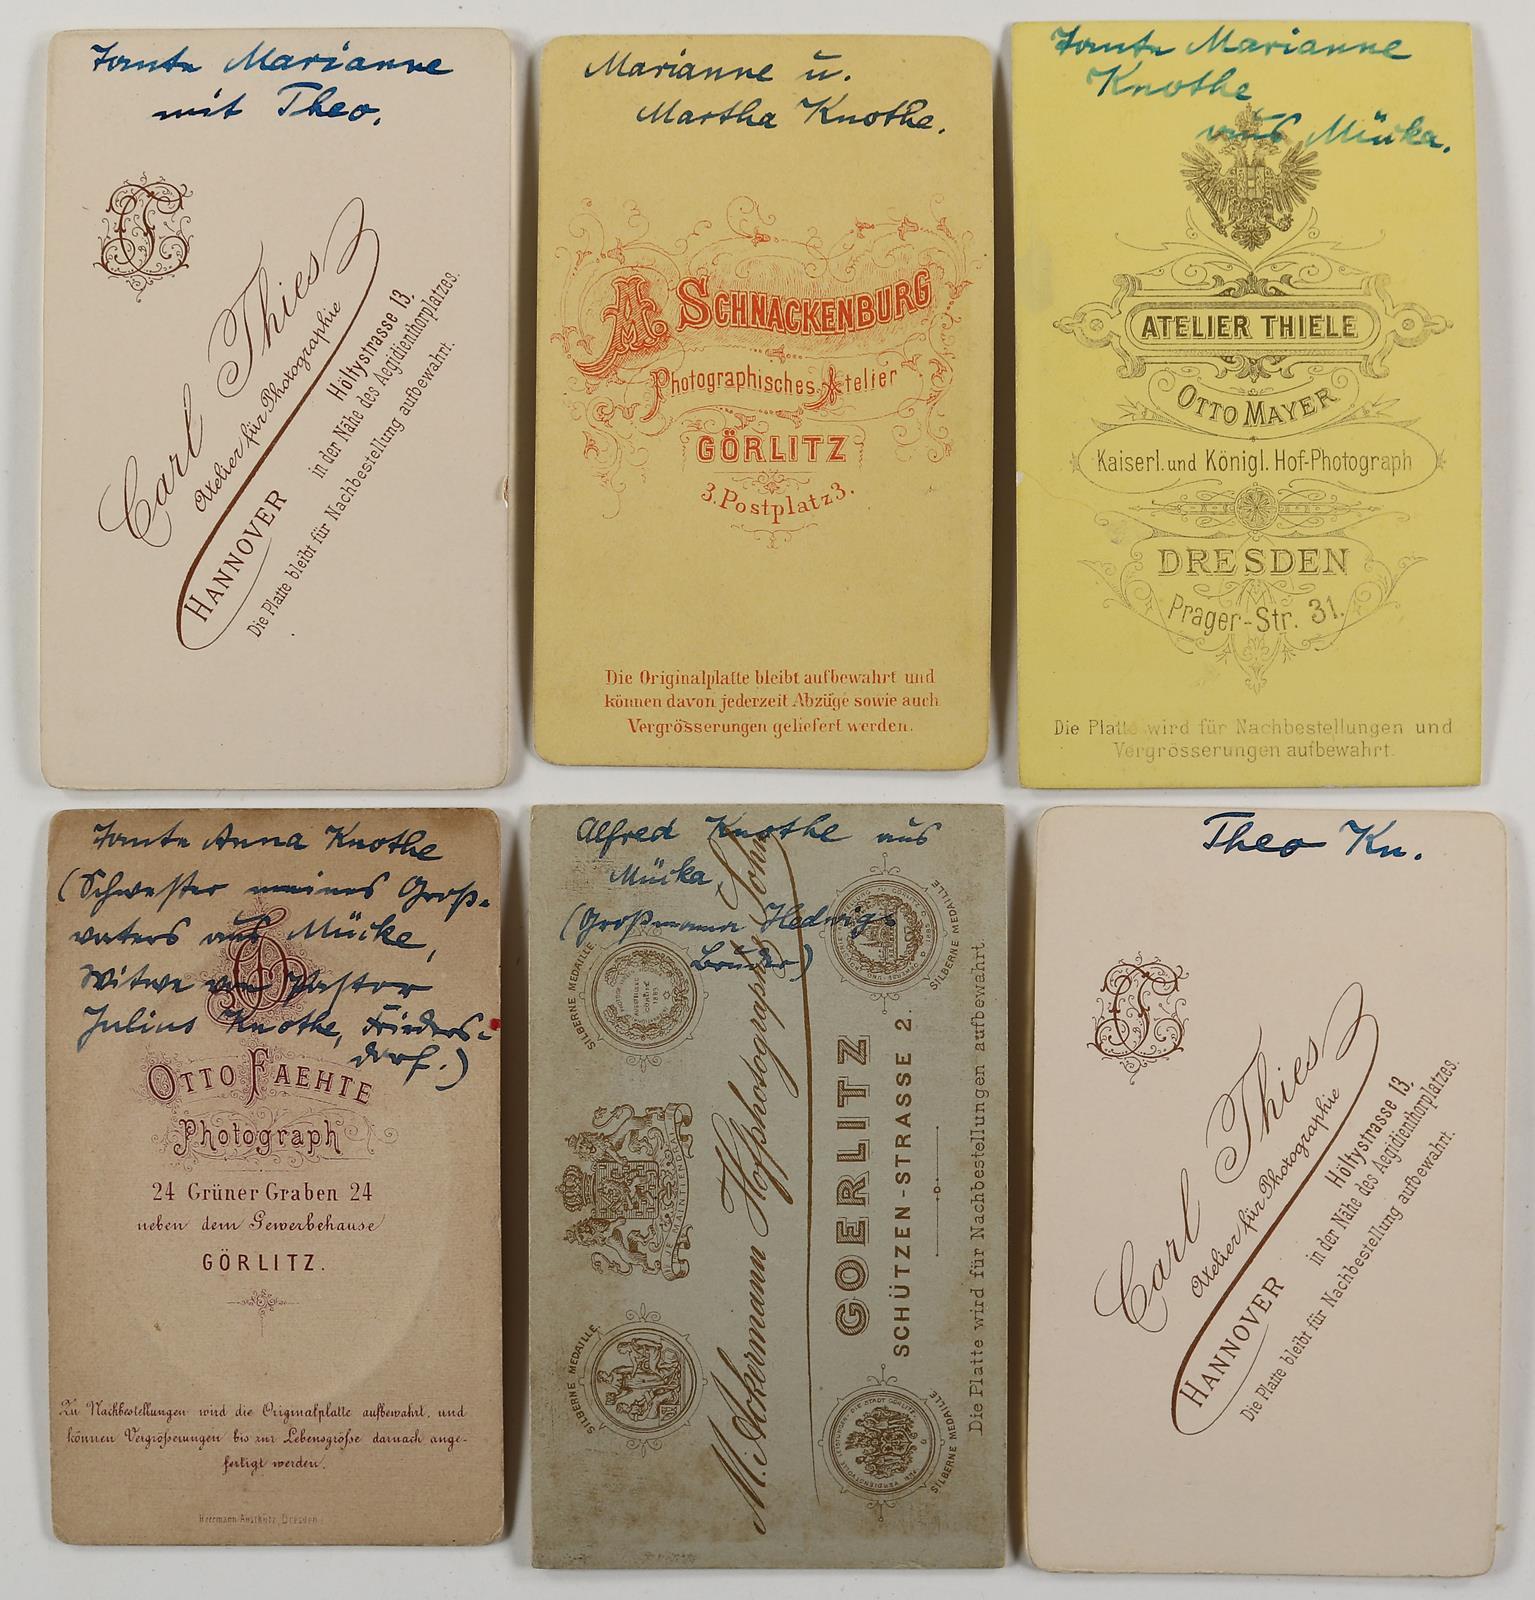 Tante Marianne
mit Theo.
Carl Thies
Atelier für Photographie
HANNOVER
Höltystrasse 13.
in der Nähe des Aegidienthorplatzes.
Die Platte bleibt für Nachbestellung aufbewahrt.
Marianne u.
Martha Knothe.
A. SCHNACKENBURG
Photographisches Atelier
GÖRLITZ
3. Postplatz 3.
Die Originalplatte bleibt aufbewahrt und
können davon jederzeit Abzüge sowie auch
Vergrösserungen geliefert werden.
Tante Marianne
Knothe
aus Mücka.
ATELIER THIELE
OTTO MAYER
Kaiserl. und Königl. Hof-Photograph
DRESDEN
Prager-Str. 31.
Die Platte wird für Nachbestellungen und
Vergrösserungen aufbewahrt.
Tante Anna Knothe
(Schwester meines Groß-
vaters aus Mücke,
Witwe von Pastor
Julius Knothe, Frieders-
dorf.)
OTTO FAEHTE
Photograph
24 Grüner Graben 24
neben dem Gewerbehause
GÖRLITZ.
Zu Nachbestellungen wird die Originalplatte aufbewahrt, und
können Vergrößerungen bis zur Lebensgröße darnach ange-
fertigt werden.
Alfred Knothe aus
Mücka
(Großmama Hedwigs
Bruder)
SILBERNE MEDAILLE
SILBERNE MEDAILLE
SILBERNE MEDAILLE
SILBERNE MEDAILLE
JE MAINTIENDRAI
M. Ackermann Hofphotograph's Sohn
GOERLITZ
SCHÜTZEN-STRASSE 2.
Die Platte wird für Nachbestellungen aufbewahrt.
Theo Kn.
Carl Thies
Atelier für Photographie
HANNOVER
Höltystrasse 13.
in der Nähe des Aegidienthorplatzes.
Die Platte bleibt für Nachbestellung aufbewahrt.